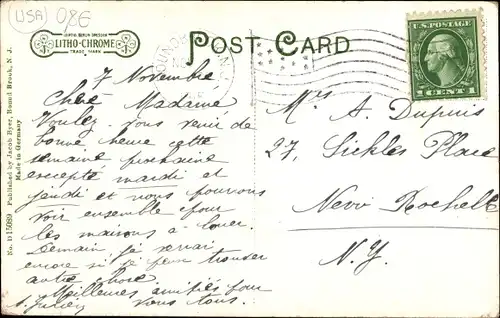 (USA) 08E
LEIPZIG BERLIN DRESDEN
LITHO-CHROME
TRADE MARK
POST CARD
BOUND
U.S. POSTAGE
1 CENT 1
No. D 15089 Published by Jacob Byer, Bound Brook, N. J.
Made in Germany
7 Novembre
Chère Madame
Voulez vous venir de
bonne heure cette
semaine prochaine
excepte mardi et
jeudi et nous pouvons
voir ensemble pour
les maisons a louer.
Demain je verrai
encore si je peux trouver
autre chose
Meilleures amitiés pour
Vous tous.
A. Julien
Mrs A. Dupuis
27, Sickles Place
New Rochelle
N. Y.